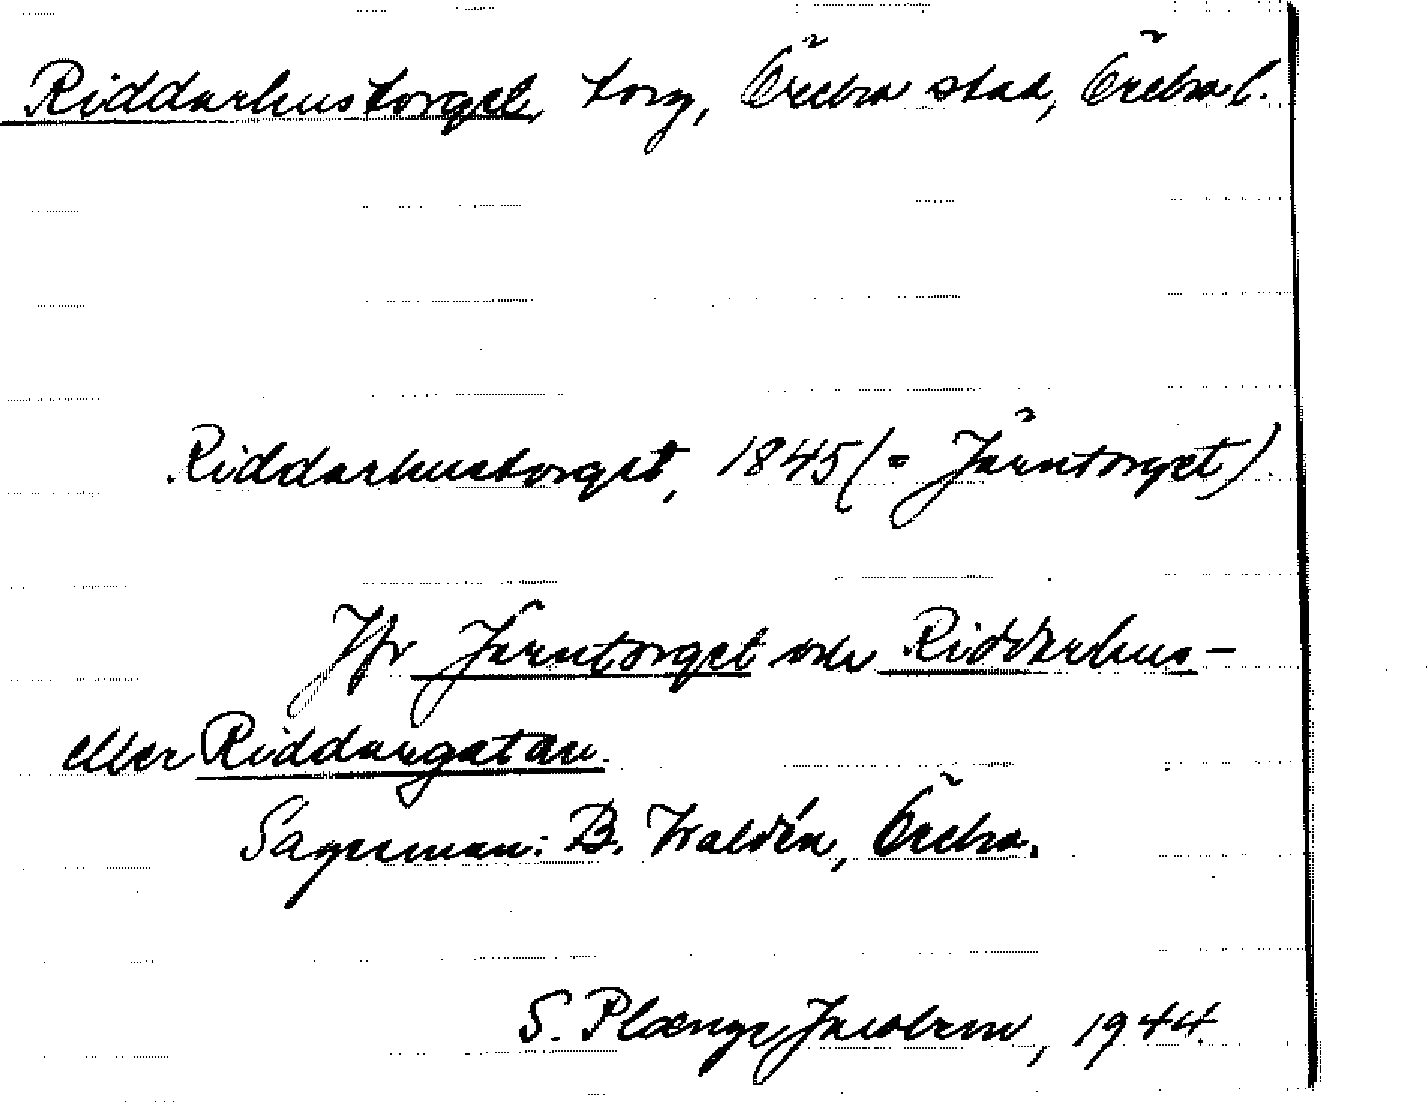 Riddarhustorget, torg, Örebro stad, Örebro l.
Riddarhustorget, 1845 (= Järntorget).
Jfr Järntorget och Riddarhus-
eller Riddargatan.
Sagesman: B. Waldén, Örebro.
S. Plænge Jacobson, 1944.